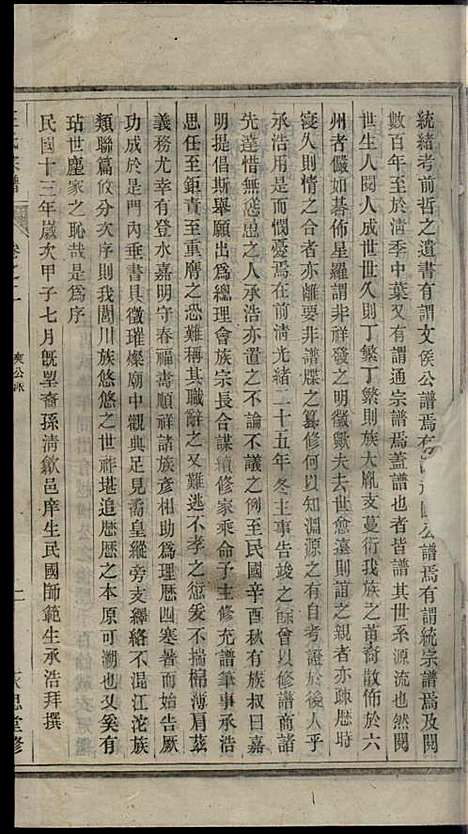 統緒考前哲之遺書有謂文侯公譜焉有公譜焉有謂統宗譜焉及閱
數百年至於清季中葉又有謂通宗譜焉蓋譜也者皆譜其世系源流也然閱
世生人閱人成世世世之久則丁繁丁繁則族大胤支蔓衍我族之苗裔散佈於六
州者儼如碁佈星羅謂非祥發之明徵歟夫去世愈遠則誼之親者亦疎歷時
寖久則情之合者亦離要非譜牒之纂修何以知淵源之有自考證於後人乎
承浩用是而憫憂焉在前清光緒二十五年冬主事告竣之餘曾以修譜商諸
先達惜無慫恿之人承浩亦置之不論不議之例至民國辛酉秋有族叔曰嘉
明提倡斯舉願出爲總理會族宗長合謀續修家乘命子主修充譜筆事承浩
思任至鉅責至重膺之恐難稱其職辭之又難逃不孝之愆爰不揣棉薄肩茲
義務尤幸有登水嘉明守春福壽順祥諸族彥相助爲理歷四寒暑而始告厥
功成於是門內垂書具徵璀燦廟中觀典足見喬皇縱旁支繹絡不混江沱族
類聯篇攸分次序則我閶川族悠悠之世祚堪追歷歷之本原可溯也又奚有
玷世塵家之恥哉是爲序
民國十三年歲次甲子七月旣望裔孫清歙邑庠生民國師範生承浩拜撰
王氏宗譜
卷之一
爽公派
一
敘思堂修